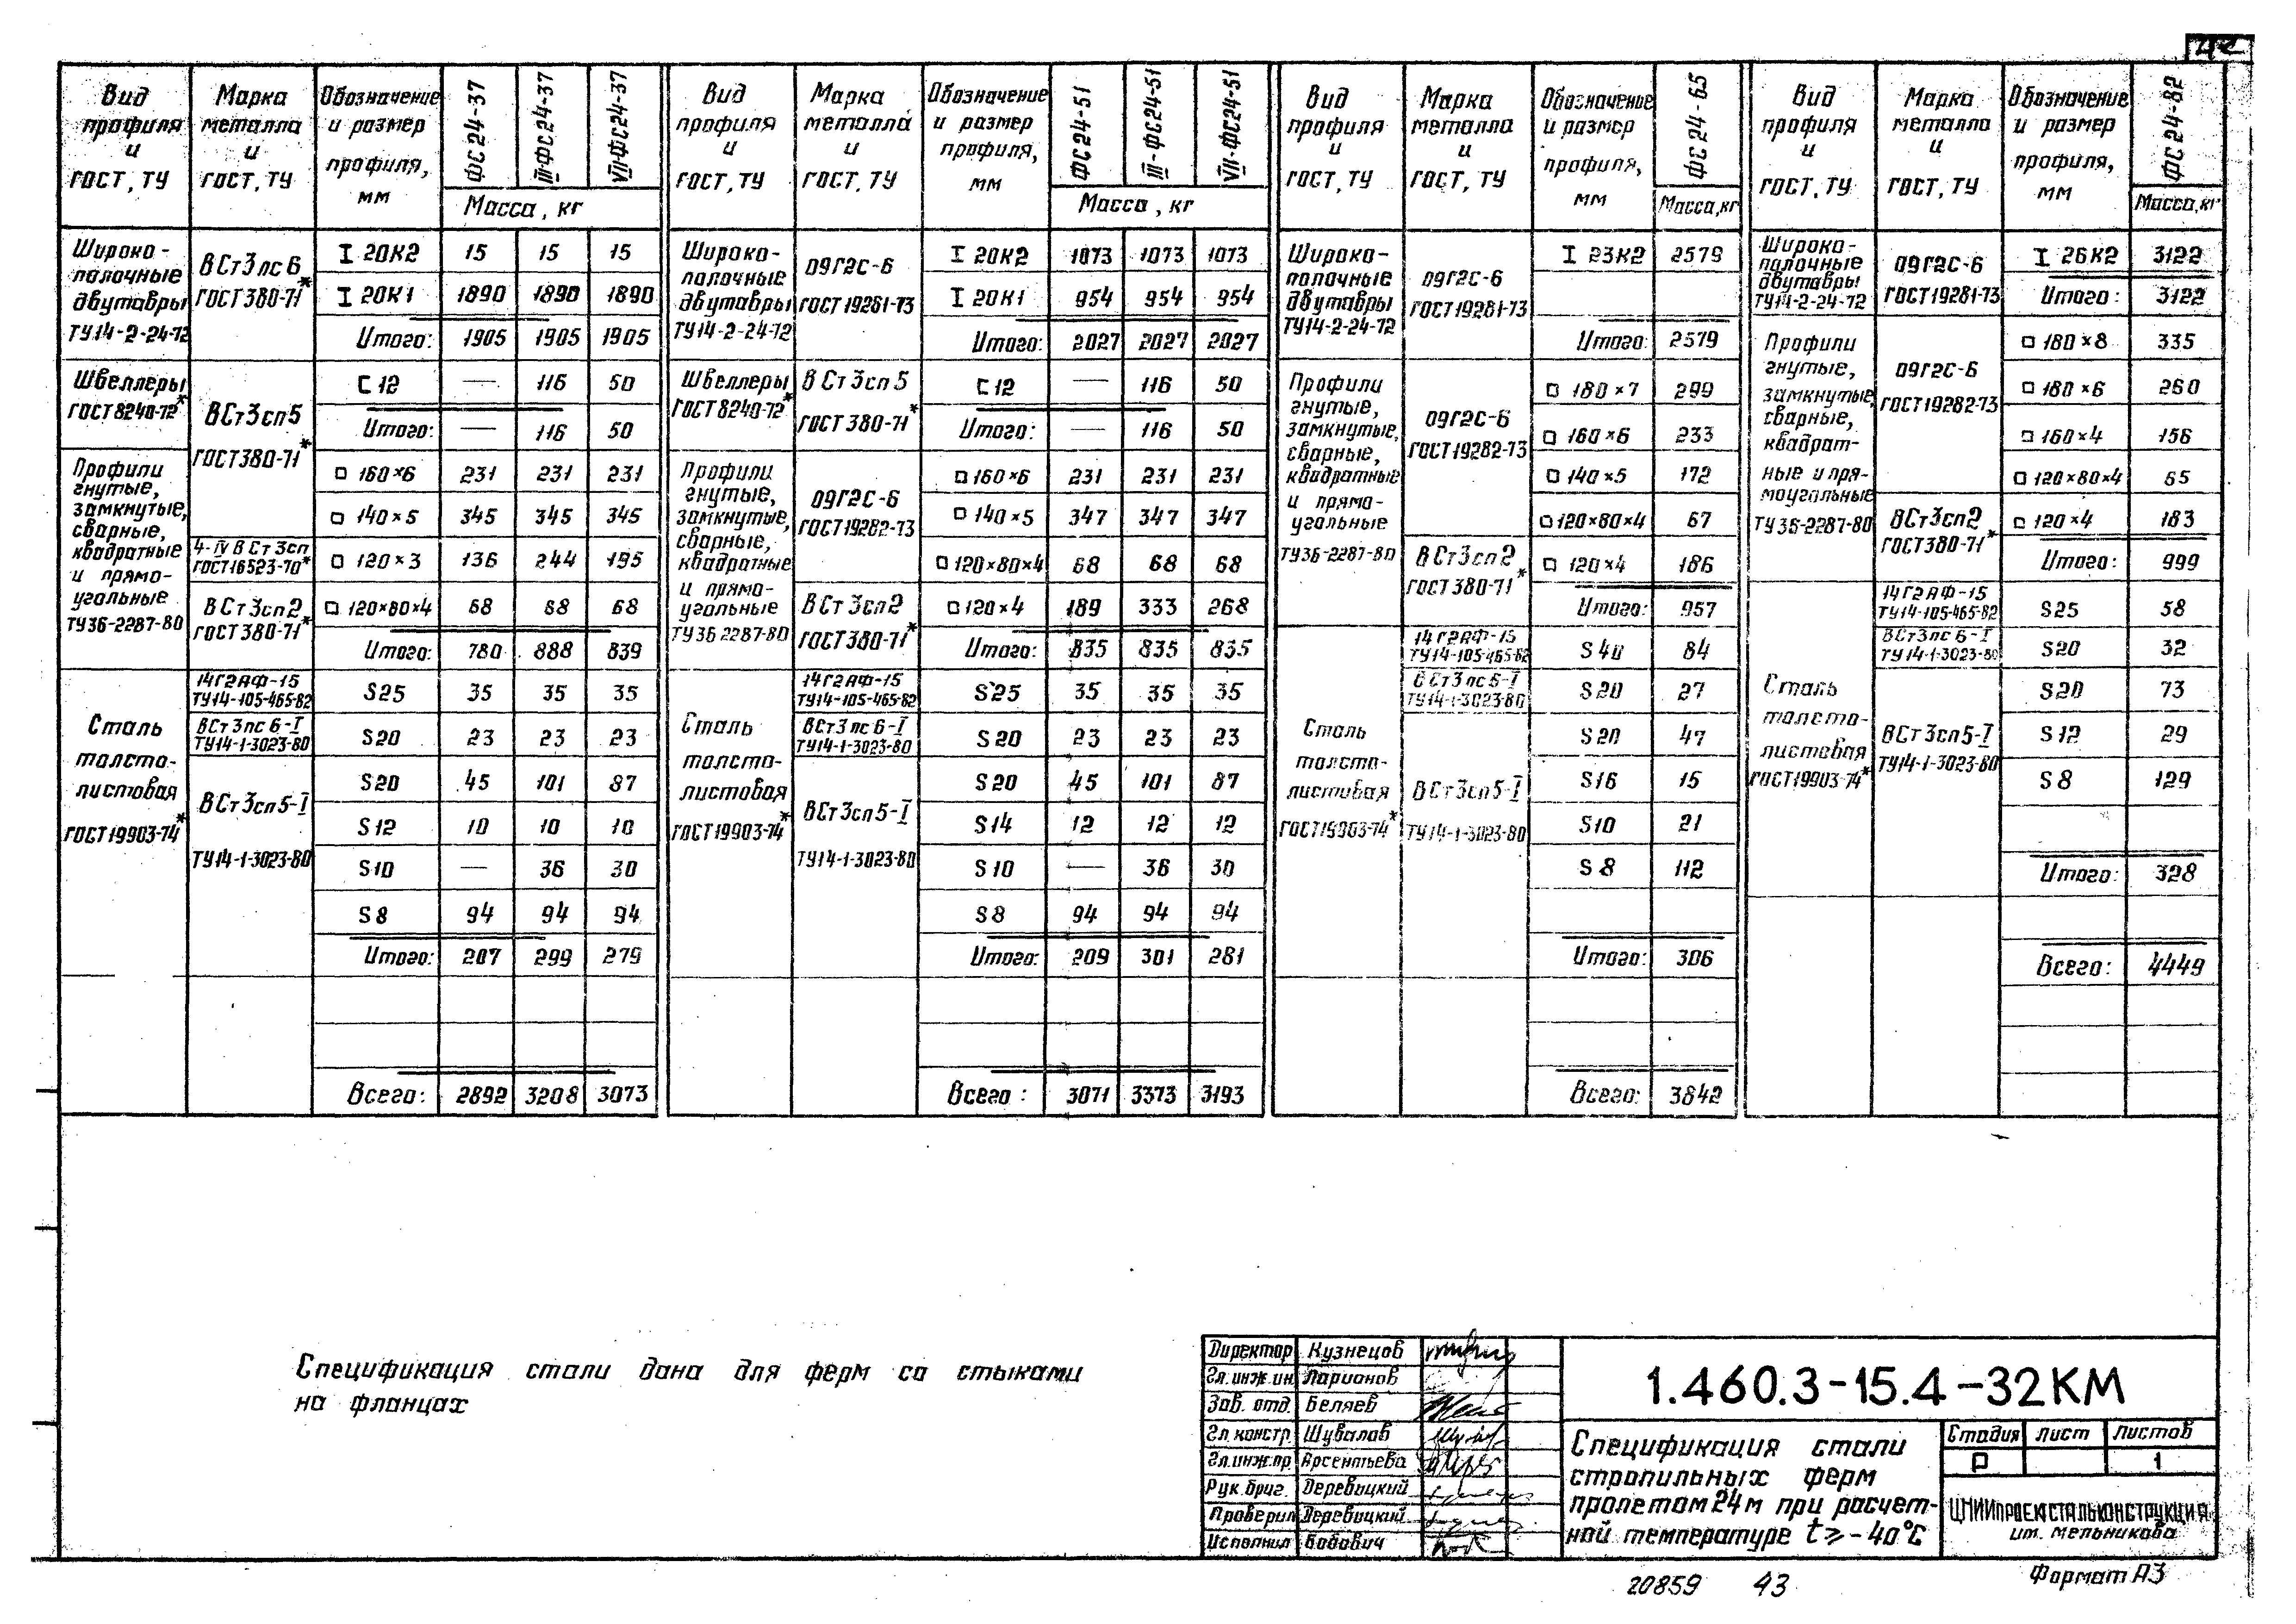 42
Вид профиля и ГОСТ, ТУ | Марка металла и ГОСТ, ТУ | Обозначение и размер профиля, мм | ФС24-37 | III-ФС24-37 | VII-ФС24-37
Масса, кг
Широкополочные двутавры ТУ14-2-24-72 | ВСт3пс6 ГОСТ380-71* | I 20К2 | 15 | 15 | 15
I 20К1 | 1890 | 1890 | 1890
Итого: | 1905 | 1905 | 1905
Швеллеры ГОСТ8240-72* | ВСт3сп5 ГОСТ380-71* | С 12 | — | 116 | 50
Итого: | — | 116 | 50
Профили гнутые, замкнутые, сварные, квадратные и прямоугольные ТУ36-2287-80 | □ 160×6 | 231 | 231 | 231
□ 140×5 | 345 | 345 | 345
4-IV ВСт3сп ГОСТ16523-70* | □ 120×3 | 136 | 244 | 195
ВСт3сп2 ГОСТ380-71* | □ 120×80×4 | 68 | 68 | 68
Итого: | 780 | 888 | 839
Сталь толстолистовая ГОСТ19903-74* | 14Г2АФ-15 ТУ14-105-465-82 | S25 | 35 | 35 | 35
ВСт3пс6-I ТУ14-1-3023-80 | S20 | 23 | 23 | 23
ВСт3сп5-I ТУ14-1-3023-80 | S20 | 45 | 101 | 87
S12 | 10 | 10 | 10
S10 | — | 36 | 30
S8 | 94 | 94 | 94
Итого: | 207 | 299 | 279
Всего: | 2892 | 3208 | 3073
Вид профиля и ГОСТ, ТУ | Марка металла и ГОСТ, ТУ | Обозначение и размер профиля, мм | ФС24-51 | III-ФС24-51 | VII-ФС24-51
Масса, кг
Широкополочные двутавры ТУ14-2-24-72 | 09Г2С-6 ГОСТ19281-73 | I 20К2 | 1073 | 1073 | 1073
I 20К1 | 954 | 954 | 954
Итого: | 2027 | 2027 | 2027
Швеллеры ГОСТ8240-72* | ВСт3сп5 ГОСТ380-71* | С 12 | — | 116 | 50
Итого: | — | 116 | 50
Профили гнутые, замкнутые, сварные, квадратные и прямоугольные ТУ36 2287-80 | 09Г2С-6 ГОСТ19282-73 | □ 160×6 | 231 | 231 | 231
□ 140×5 | 347 | 347 | 347
□ 120×80×4 | 68 | 68 | 68
ВСт3сп2 ГОСТ380-71* | □ 120×4 | 189 | 333 | 268
Итого: | 835 | 835 | 835
Сталь толстолистовая ГОСТ19903-74* | 14Г2АФ-15 ТУ14-105-465-82 | S25 | 35 | 35 | 35
ВСт3пс6-I ТУ14-1-3023-80 | S20 | 23 | 23 | 23
ВСт3сп5-I ТУ14-1-3023-80 | S20 | 45 | 101 | 87
S14 | 12 | 12 | 12
S10 | — | 36 | 30
S8 | 94 | 94 | 94
Итого: | 209 | 301 | 281
Всего: | 3071 | 3373 | 3193
Вид профиля и ГОСТ, ТУ | Марка металла и ГОСТ, ТУ | Обозначение и размер профиля, мм | ФС24-65
Масса, кг
Широкополочные двутавры ТУ14-2-24-72 | 09Г2С-6 ГОСТ19281-73 | I 23К2 | 2579
Итого: | 2579
Профили гнутые, замкнутые, сварные, квадратные и прямоугольные ТУ36-2287-80 | 09Г2С-6 ГОСТ19282-73 | □ 180×7 | 299
□ 160×6 | 233
□ 140×5 | 172
□ 120×80×4 | 67
ВСт3сп2 ГОСТ380-71* | □ 120×4 | 186
Итого: | 957
Сталь толстолистовая ГОСТ19903-74* | 14Г2АФ-15 ТУ14-105-465-82 | S40 | 84
ВСт3пс6-I ТУ14-1-3023-80 | S20 | 27
ВСт3сп5-I ТУ14-1-3023-80 | S20 | 47
S16 | 15
S10 | 21
S8 | 112
Итого: | 306
Всего: | 3842
Вид профиля и ГОСТ, ТУ | Марка металла и ГОСТ, ТУ | Обозначение и размер профиля, мм | ФС24-82
Масса, кг
Широкополочные двутавры ТУ14-2-24-72 | 09Г2С-6 ГОСТ19281-73 | I 26К2 | 3122
Итого: | 3122
Профили гнутые, замкнутые, сварные, квадратные и прямоугольные ТУ36-2287-80 | 09Г2С-6 ГОСТ19282-73 | □ 180×8 | 335
□ 180×6 | 260
□ 160×4 | 156
□ 120×80×4 | 65
ВСт3сп2 ГОСТ380-71* | □ 120×4 | 183
Итого: | 999
Сталь толстолистовая ГОСТ19903-74* | 14Г2АФ-15 ТУ14-105-465-82 | S25 | 58
ВСт3пс6-I ТУ14-1-3023-80 | S20 | 32
ВСт3сп5-I ТУ14-1-3023-80 | S20 | 73
S12 | 29
S8 | 129
Итого: | 328
Всего: | 4449
Спецификация стали дана для ферм со стыками
на фланцах
Директор Кузнецов
Гл.инж.ин. Ларионов
Зав. отд. Беляев
Гл.констр. Шувалов
Гл.инж.пр. Арсентьева
Рук.бриг. Деревицкий
Проверил Деревицкий
Исполнил Бабович
1.460.3-15.4-32КМ
Спецификация стали
стропильных ферм
пролетом 24м при расчет-
ной температуре t≥-40°С
Стадия Лист Листов
Р 1
ЦНИИПРОЕКТСТАЛЬКОНСТРУКЦИЯ
им. Мельникова
20859 43
Формат А3